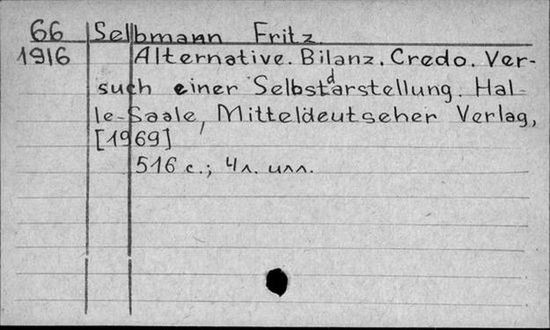 66 Selbmann Fritz.
1916 Alternative. Bilanz. Credo. Ver-
such einer Selbstdarstellung. Hal-
le-Saale, Mitteldeutscher Verlag,
[1969]
516 с.; 4л. илл.